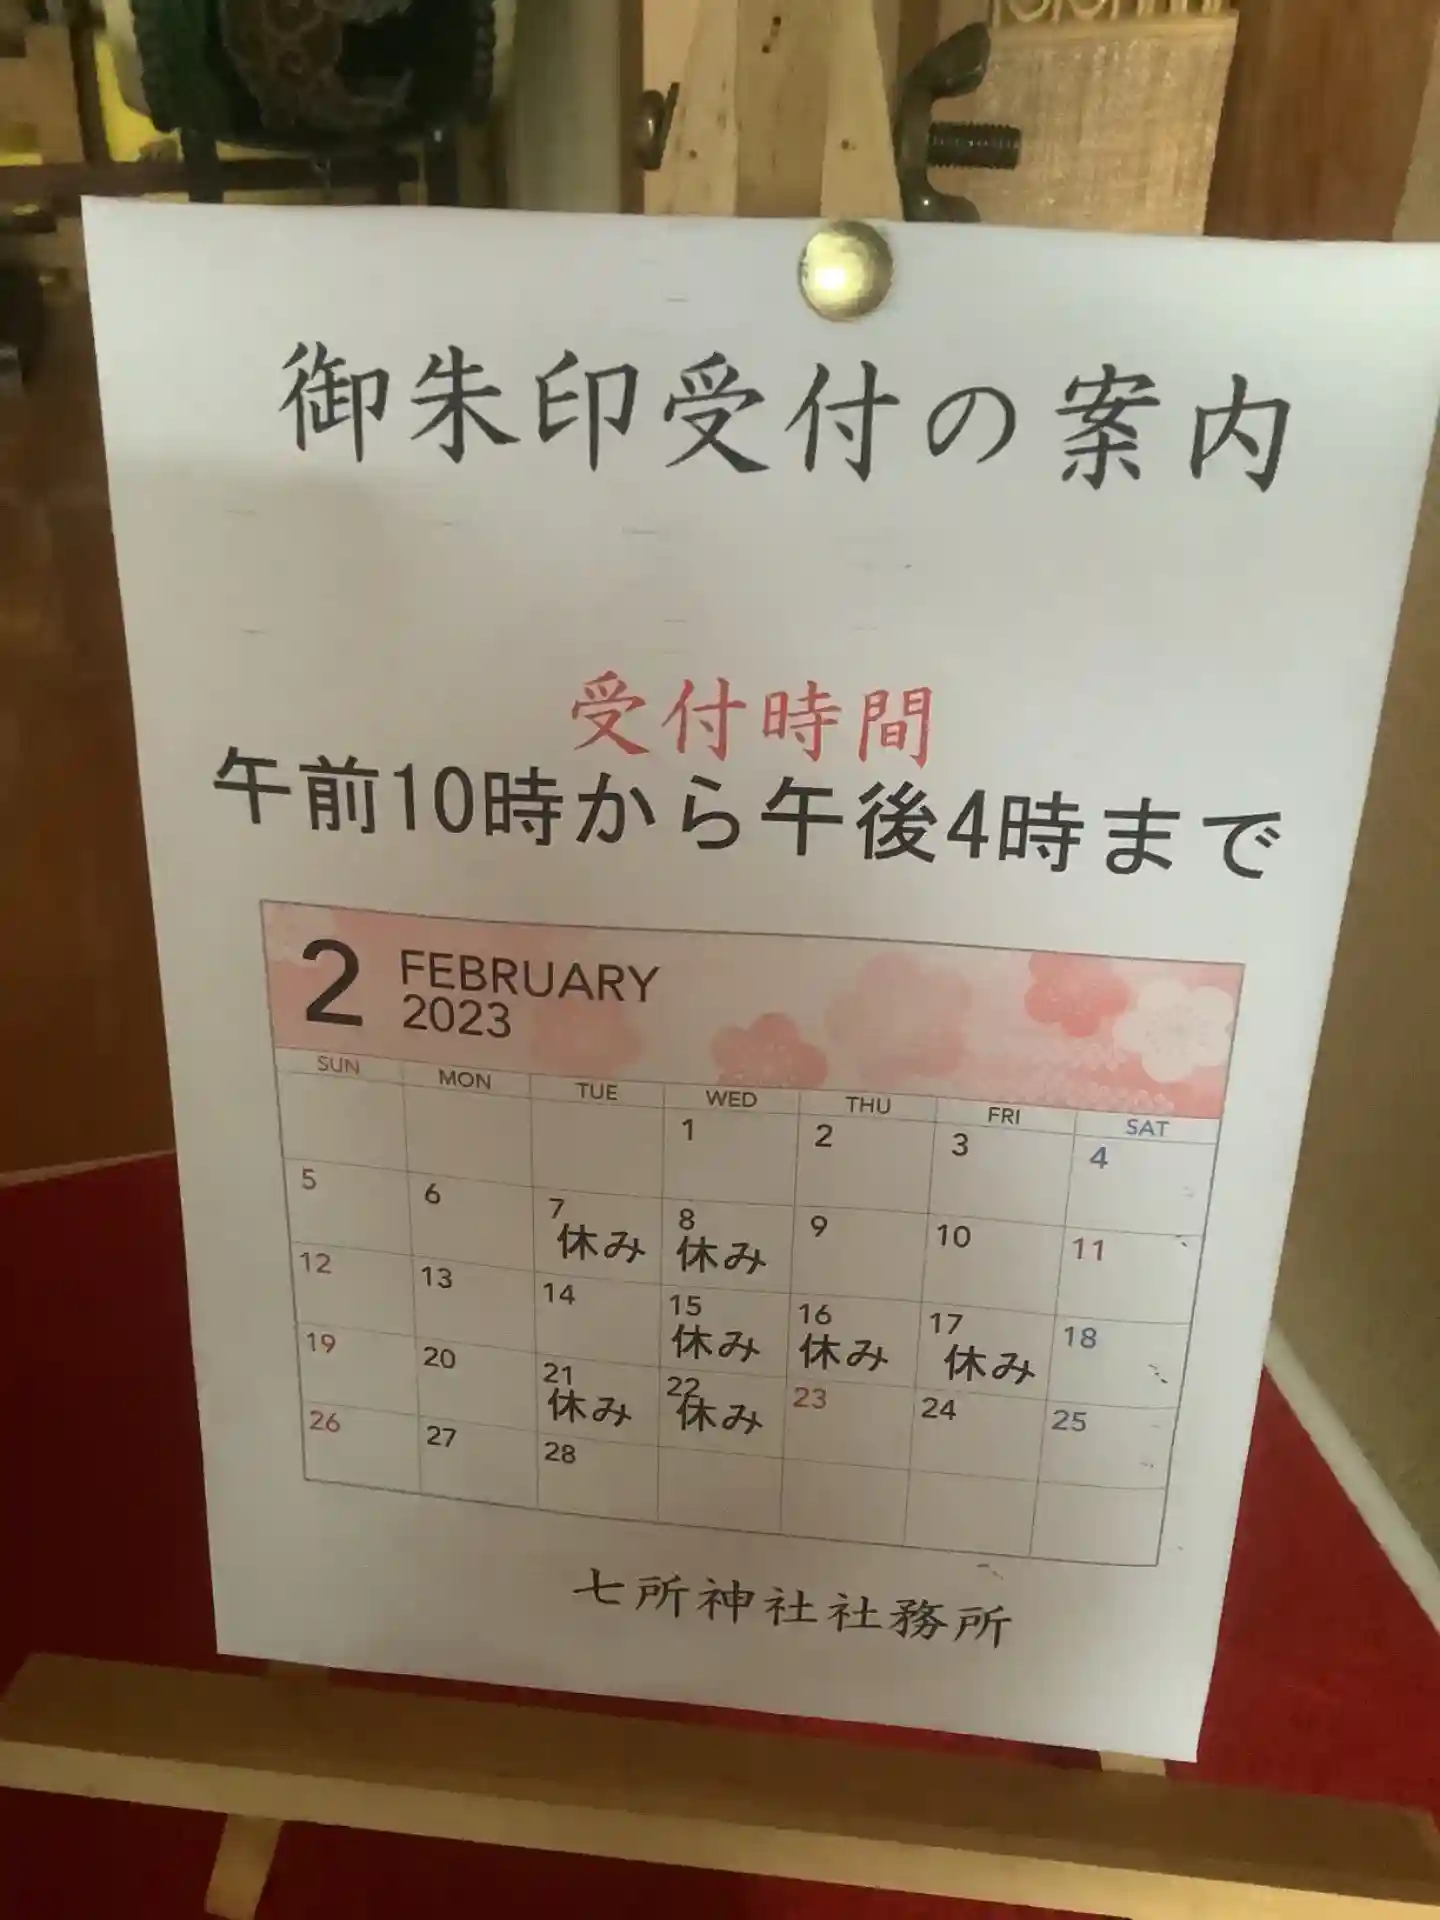 御朱印受付の案内
受付時間
午前10時から午後4時まで
2 FEBRUARY
2023
SUN MON TUE WED THU FRI SAT
1 2 3 4
5 6 7 8 9 10 11
休み 休み
12 13 14 15 16 17 18
休み 休み 休み
19 20 21 22 23 24 25
休み 休み
26 27 28
七所神社社務所